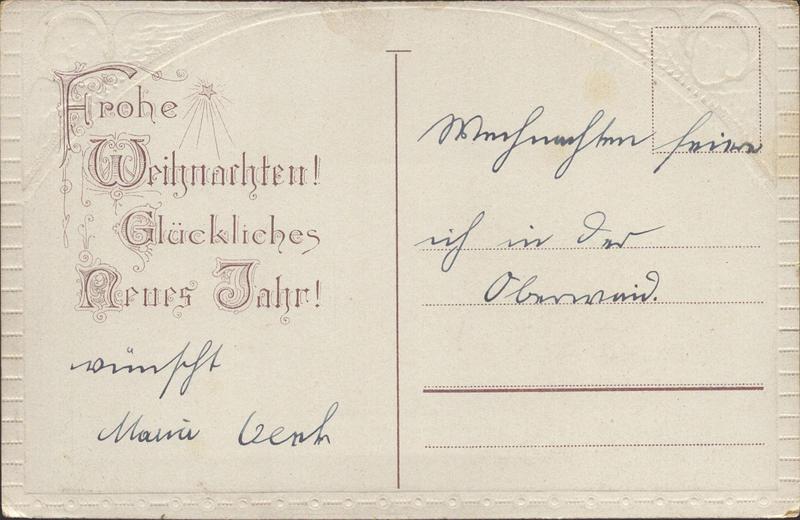 Frohe
Weihnachten!
Glückliches
Neues Jahr!
wünscht
Marie
Weihnachten feiere
ich in der
Oberwaid.